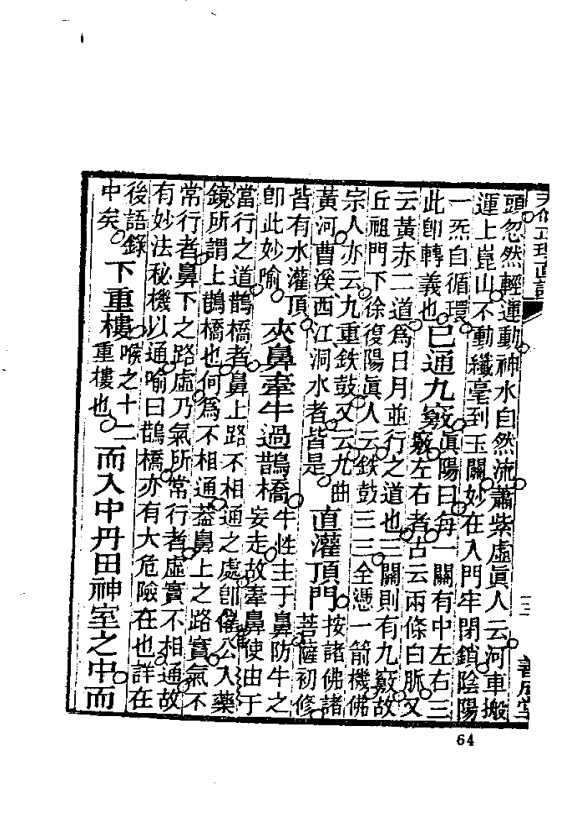 天仙正理直論
十三
善成堂
頭忽然輕運動神水自然流蕭紫虛眞人云河車搬
運上崑山不動纖毫到玉關妙在入門牢閉鎖陰陽
一炁自循環
此卽轉義也
已通九竅
眞陽曰每一關有中左右三
竅左右者古云兩條白脈又
云黃赤二道爲日月並行之道也三關則有九竅故
丘祖門下徐復陽眞人云鉄鼓三三全憑一箭機佛
宗人亦云九重鉄鼓又云九曲
黃河曹溪西江洞水者皆是
直灌頂門
按諸佛諸
菩薩初修
皆有水灌頂
卽此妙喻
夾鼻牽牛過鵲橋
牛性主于鼻防牛之
妄走故牽鼻使由于
當行之道鵲橋者鼻上路不相通之處卽催公入藥
鏡所謂上鵲橋也何爲不相通葢鼻上之路實氣不
常行者鼻下之路虛乃氣所常行者虛實不相通故
有妙法秘機以通喻曰鵲橋亦有大危險在也詳在
後語錄
中矣
下重樓
喉之十二
重樓也
而入中丹田神室之中而
64